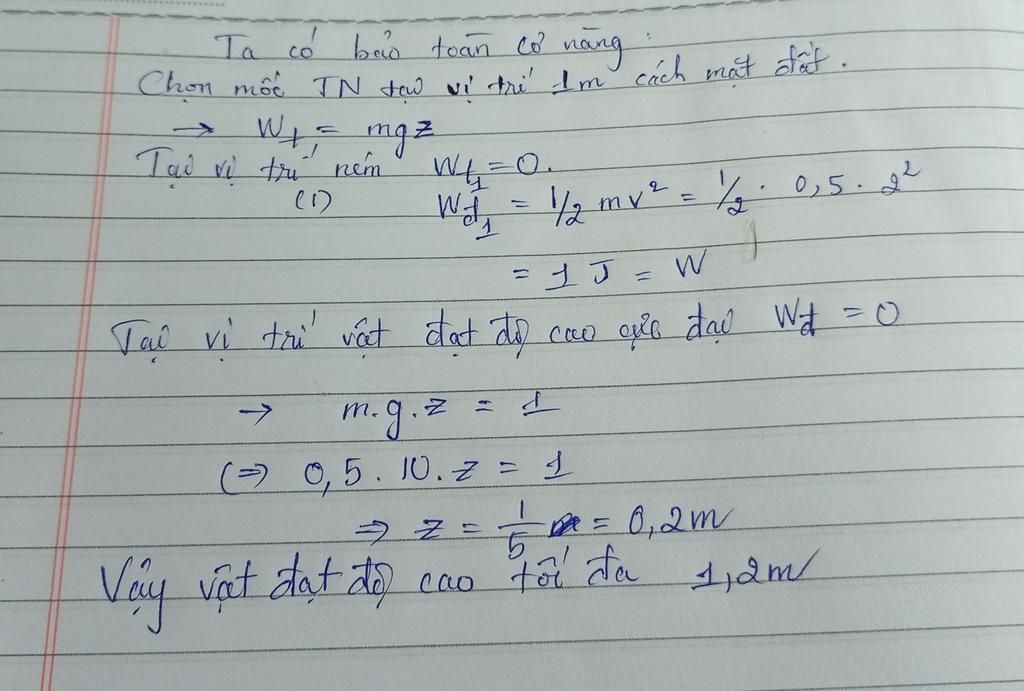 Ta có bảo toàn cơ năng:
Chọn mốc TN tại vị trí 1m cách mặt đất.
→ Wt = mgz
Tại vị trí ném Wt1 = 0.
(1) Wđ1 = 1/2 mv² = 1/2 . 0,5 . 2²
= 1 J = W
Tại vị trí vật đạt độ cao cực đại Wđ = 0
→ m.g.z = 1
(=) 0,5 . 10 . z = 1
⇒ z = 1/5 = 0,2m
Vậy vật đạt độ cao tối đa 1,2m